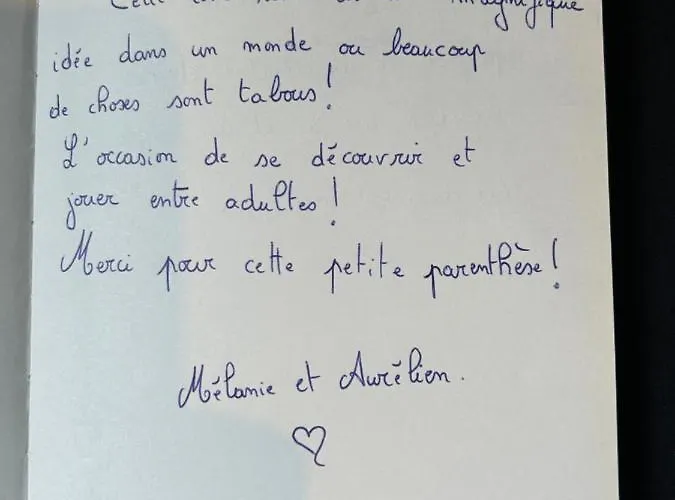 magnifique
idée dans un monde ou beaucoup
de choses sont tabous!
L'occasion de se découvrir et
jouer entre adultes!
Merci pour cette petite parenthèse!
Mélanie et Aurélien.